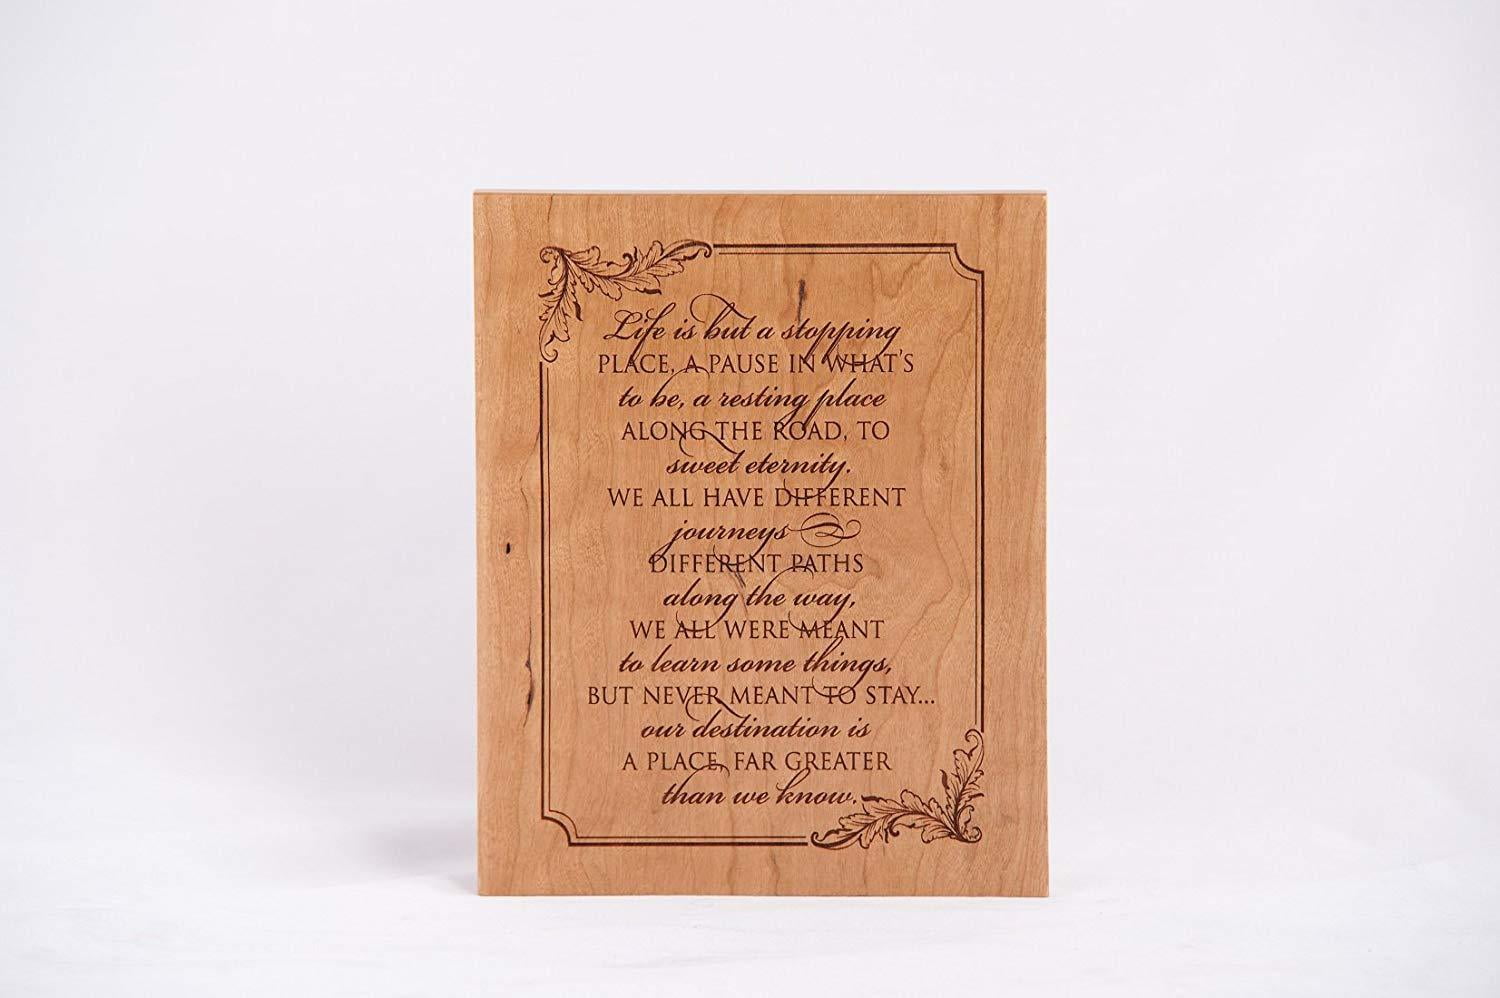 Life is but a stopping
PLACE, A PAUSE IN WHAT'S
to be, a resting place
ALONG THE ROAD, TO
sweet eternity.
WE ALL HAVE DIFFERENT
journeys &
DIFFERENT PATHS
along the way,
WE ALL WERE MEANT
to learn some things,
BUT NEVER MEANT TO STAY...
our destination is
A PLACE, FAR GREATER
than we know.